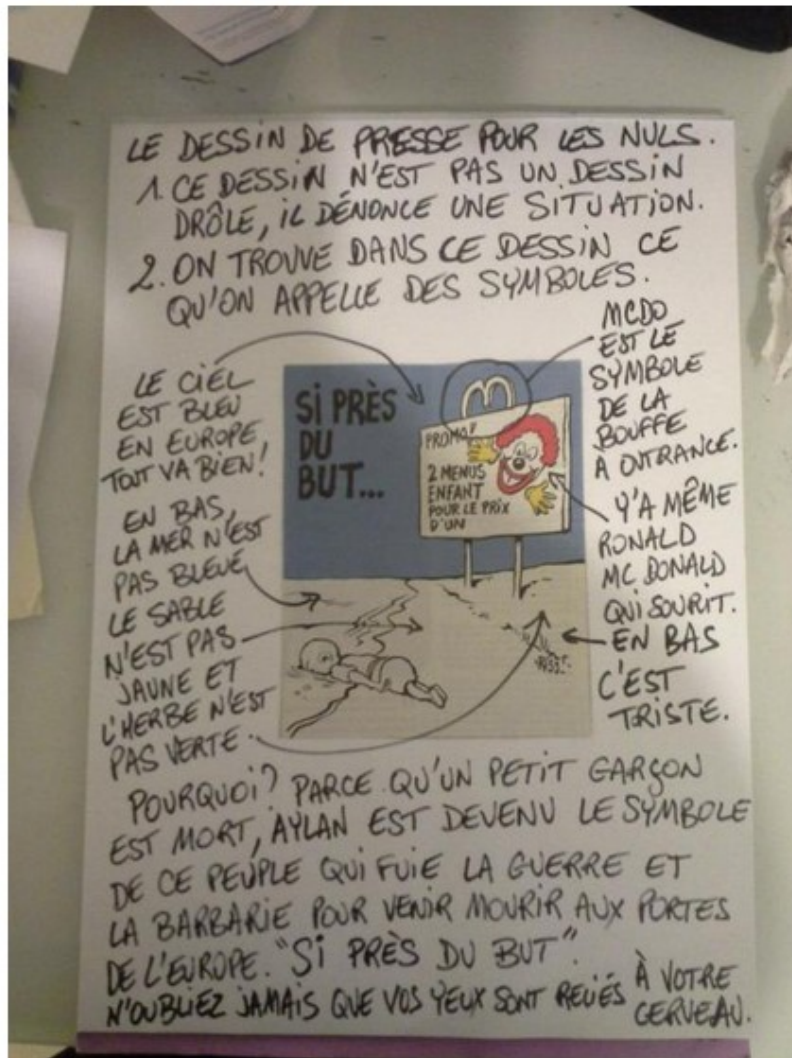 LE DESSIN DE PRESSE POUR LES NULS.
1. CE DESSIN N'EST PAS UN DESSIN
DRÔLE, IL DÉNONCE UNE SITUATION.
2. ON TROUVE DANS CE DESSIN CE
QU'ON APPELLE DES SYMBOLES.
LE CIEL
EST BLEU
EN EUROPE
TOUT VA BIEN!
EN BAS,
LA MER N'EST
PAS BLEUE,
LE SABLE
N'EST PAS
JAUNE ET
L'HERBE N'EST
PAS VERTE.
SI PRÈS
DU
BUT...
PROMO!
2 MENUS
ENFANT
POUR LE PRIX
D'UN
MCDO
EST LE
SYMBOLE
DE LA
BOUFFE
À OUTRANCE.
Y'A MÊME
RONALD
MC DONALD
QUI SOURIT.
EN BAS
C'EST
TRISTE.
POURQUOI? PARCE QU'UN PETIT GARÇON
EST MORT, AYLAN EST DEVENU LE SYMBOLE
DE CE PEUPLE QUI FUIE LA GUERRE ET
LA BARBARIE POUR VENIR MOURIR AUX PORTES
DE L'EUROPE. "SI PRÈS DU BUT".
N'OUBLIEZ JAMAIS QUE VOS YEUX SONT RELIÉS À VOTRE
CERVEAU.